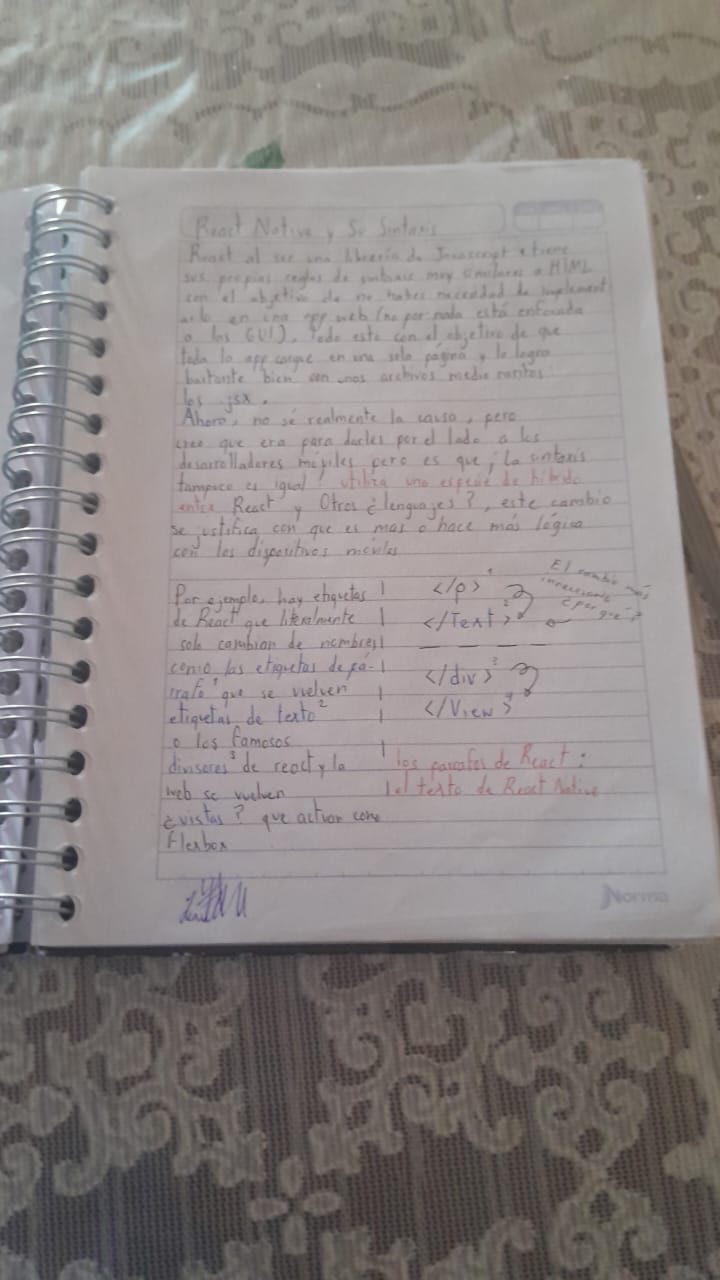 React Native y Su Sintaxis
React al ser una librería de Javascript tiene
sus propias reglas de sintaxis muy similares a HTML
con el objetivo de no haber necesidad de implement
arlo en una app web (no por nada está enfocada
a las GUI). Todo esto con el objetivo de que
toda la app cargue en una sola página y lo logra
bastante bien con unos archivos medio raritos
los .jsx.
Ahora, no sé realmente la causa, pero
creo que era para darles por el lado a los
desarrolladores móviles pero es que ¡La sintaxis
tampoco es igual! utiliza una especie de híbrido
entre React y Otros ¿lenguajes?, este cambio
se justifica con que es mas o hace más lógica
con los dispositivos móviles
Por ejemplo, hay etiquetas
de React que literalmente
solo cambian de nombres
como las etiquetas de pá-
rrafo ¹ que se vuelven
etiquetas de texto ²
o los famosos
divisores ³ de react y la
web se vuelven
¿vistas? que actúan como
Flexbox
</p> ¹
</Text> ²
</div> ³
</View> ⁴
El cambio más
innecesario
¿por qué?
los parrafos de React:
el texto de React Native
Norma